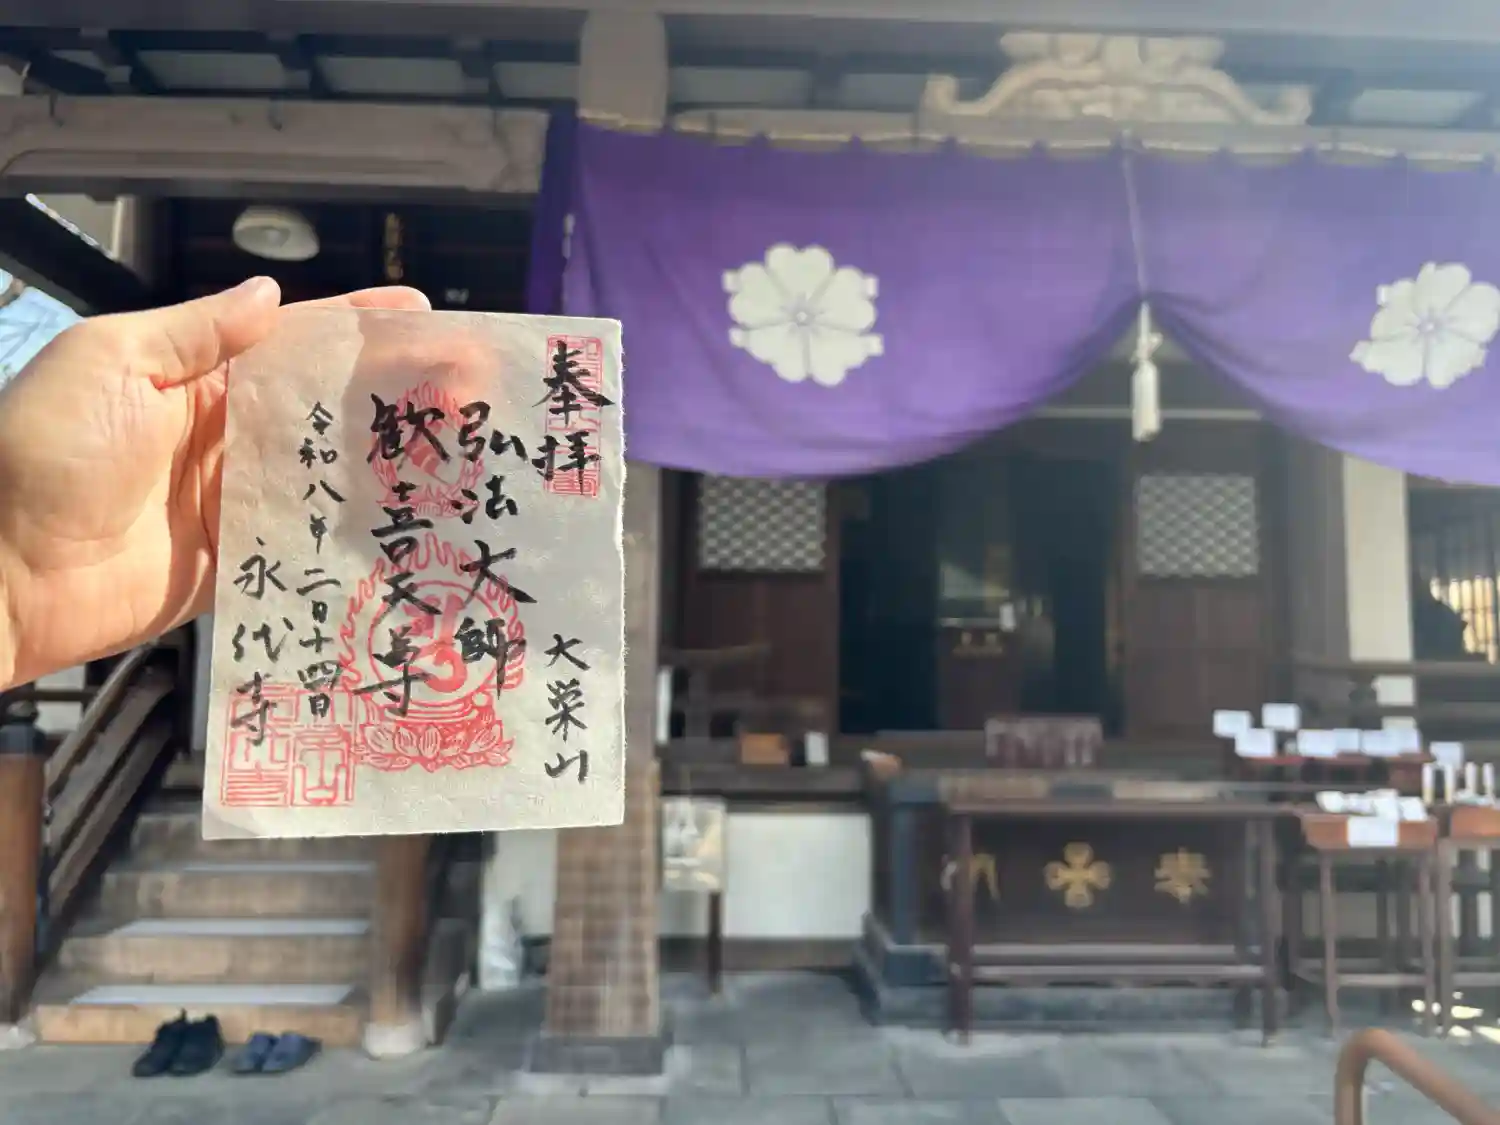 奉拝
大栄山
弘法大師
歓喜天尊
令和八年二月十四日
永代寺
奉